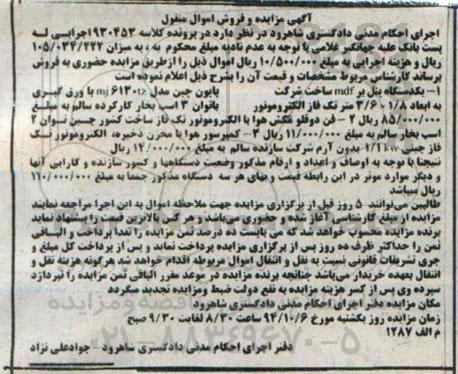 آگهی مزایده و فروش اموال منقول
اجرای احکام مدنی دادگستری شاهرود در نظر دارد در پرونده کلاسه ۹۳۰۴۵۳اجرایی له
پست بانک علیه جهانگیر غلامی با توجه به عدم تادیه مبلغ محکوم به ، به میزان ۱۰۵/۰۳۴/۲۲۲
ریال و هزینه اجرایی به مبلغ ۱۰/۵۰۰/۰۰۰ ریال اموال ذیل را ازطریق مزایده حضوری به فروش
برساند کارشناس مربوط مشخصات و قیمت آن را بشرح ذیل اعلام نموده است
۱- یکدستگاه پنل بر mdf ساخت شرکت پایون چین مدل mj 6130tz با ورق گیری
به ابعاد ۱/۸ * ۳/۶ متر تک فاز الکتروموتور باتوان ۳ اسب بخار کارکرده سالم به مبلغ
۸۵/۰۰۰/۰۰۰ ریال ۲ - فن دوقلو مکش هوا با الکتروموتور تک فاز ساخت کشور چین توان ۲
اسب بخار سالم به مبلغ ۱۱/۰۰۰/۰۰۰ ریال ۳- کمپرسور هوا با مخزن ذخیره، الکتروموتور تک
فاز چینی بدون آرم شرکت سازنده سالم به مبلغ ۱۴/۰۰۰/۰۰۰ ریال
نتیجتا با توجه به اوصاف و اعداد و ارقام مذکور وضعیت دستگاهها و کشور سازنده و کارایی آنها
و دیگر موارد موثر در این رابطه قیمت و بهای هر سه دستگاه مذکور جمعا به مبلغ ۱۱۰/۰۰۰/۰۰۰
ریال میباشد
طالبین می‌توانند ۵ روز قبل از برگزاری مزایده جهت ملاحظه اموال به این اجرا مراجعه نمایند
مزایده از مبلغ کارشناسی آغاز شده و حضوری می‌باشد و هر کس بالاترین قیمت را پیشنهاد نماید
برنده مزایده محسوب خواهد شد که می بایست ده درصد ثمن مزایده را نقدا پرداخت و الباقی
ثمن را حداکثر ظرف ده روز پس از برگزاری مزایده پرداخت نماید و پس از پرداخت کل مبلغ و
جری تشریفات قانونی نسبت به نقل و انتقال اموال مربوطه اقدام خواهد شد هرگونه هزینه نقل و
انتقال بعهده خریدار می‌باشد چنانچه برنده مزایده در موعد مقرر الباقی ثمن مزایده را نپردازد
سپرده وی پس از کسر هزینه مزایده به نفع دولت ضبط و مزایده تجدید میگردد
مکان مزایده دفتر اجرای احکام مدنی دادگستری شاهرود
زمان مزایده روز یکشنبه مورخ ۹۴/۱۰/۶ ساعت ۸/۳۰ لغایت ۹/۳۰ صبح
م الف ۱۲۸۷
دفتر اجرای احکام مدنی دادگستری شاهرود - جوادعلی نژاد
۰۲۱-۸۸۳۴۹۶۷۰-۵